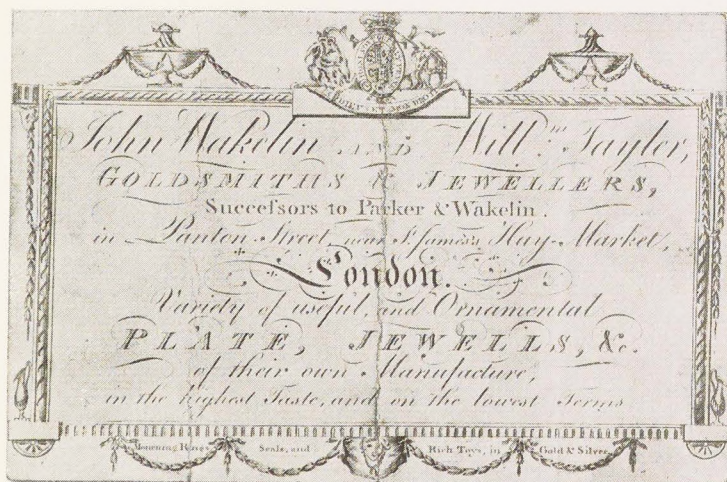 John Wakelin AND Will.m Tayler,
GOLDSMITHS & JEWELLERS,
Succeſsors to Parker & Wakelin.
in Panton Street, near St. James's Hay-Market,
London.
Variety of useful, and Ornamental
PLATE, JEWELLS, &c.
of their own Manufacture,
in the highest Taste, and on the lowest Terms
Mourning Rings Seals, and Rich Toys, in Gold & Silver